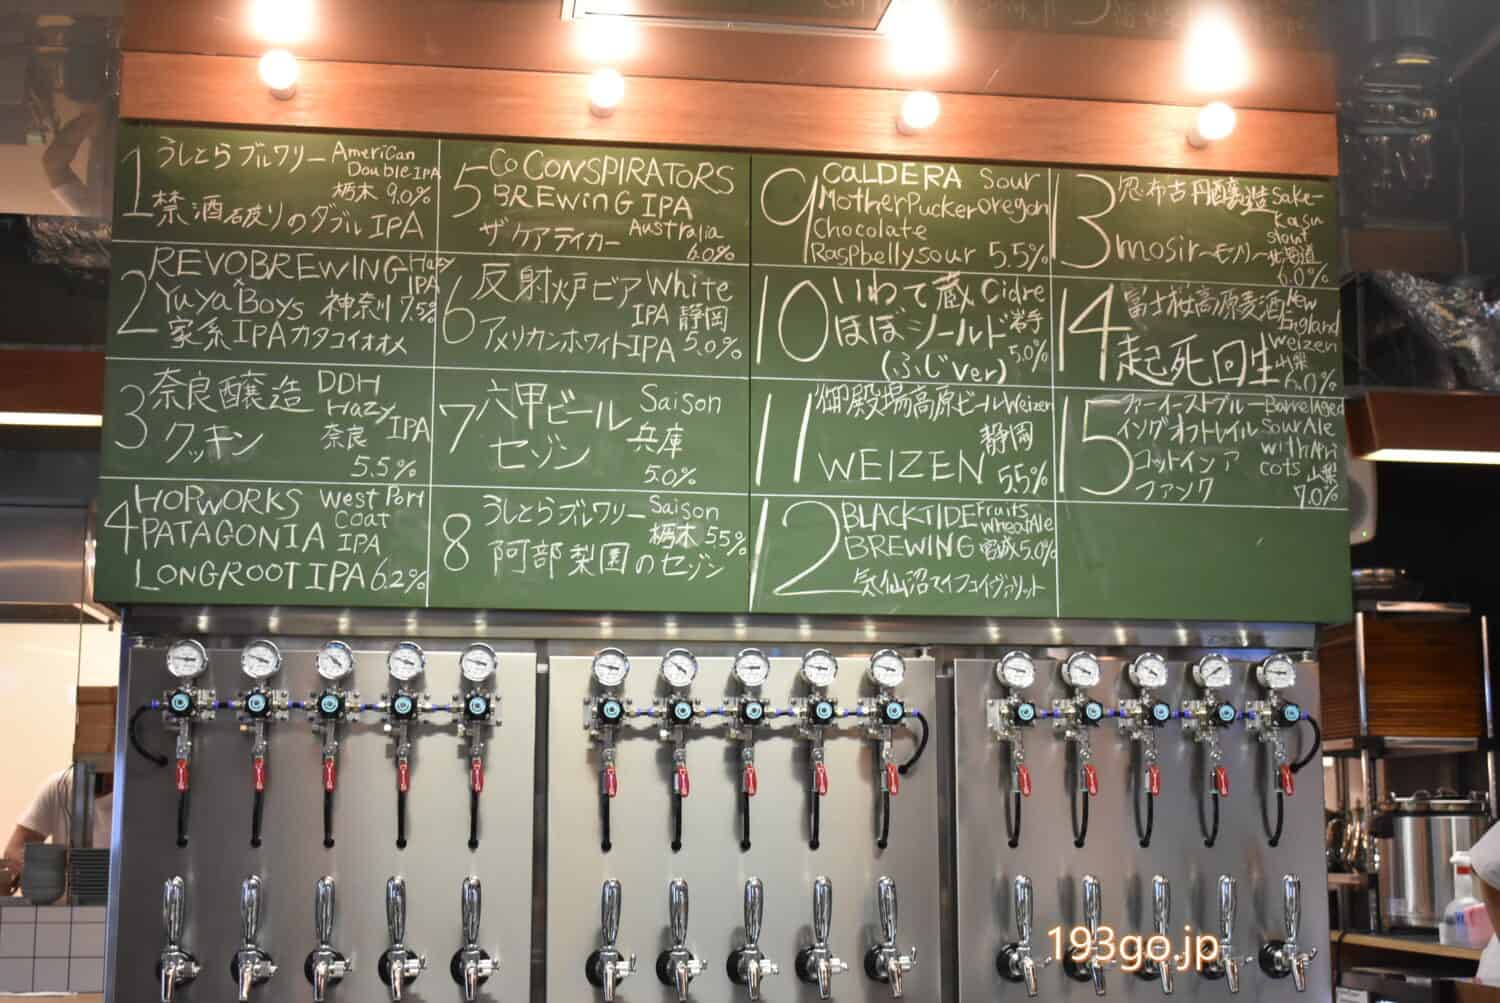 1
うしとらブルワリー American
Double IPA
栃木 9.0%
禁酒石皮りのダブルIPA
2
REVOBREWING Hazy
IPA
×
YuYa Boys 神奈川 7.5%
家系IPAカタコイオオメ
3
奈良醸造 DDH
Hazy
クッキン 奈良 IPA
5.5%
4
HOPWORKS West Port
PATAGONIA coat
IPA
LONGROOT IPA 6.2%
5
Co CONSPIRATORS
BREWING IPA
ザ ケアテイカー Australia
6.0%
6
反射炉ビア White
IPA 静岡
アメリカンホワイトIPA 5.0%
7
六甲ビール Saison
セゾン 兵庫
5.0%
8
うしとらブルワリー Saison
栃木 5.5%
阿部梨園のセゾン
9
CALDERA Sour
MotherPucker oregon
Chocolate
Raspbellysour 5.5%
10
いわて蔵 Cidre
ほぼシールド 岩手
(ふじver) 5.0%
11
御殿場高原ビール Weizen
静岡
WEIZEN 5.5%
12
BLACKTIDE Fruits
WheatAle
BREWING 宮城 5.0%
気仙沼マイフェイヴァリット
13
忽布古丹醸造 Sake-
kasu
stout
mosir~モシリ~ 北海道
6.0%
14
富士桜高原麦酒 New
England
weizen
起死回生 山梨
6.0%
15
ファーイーストブルー Barrel Aged
イング オフトレイル Sour Ale
コットン イン ア with Apri
ファンク cots
山梨
7.0%
193go.jp